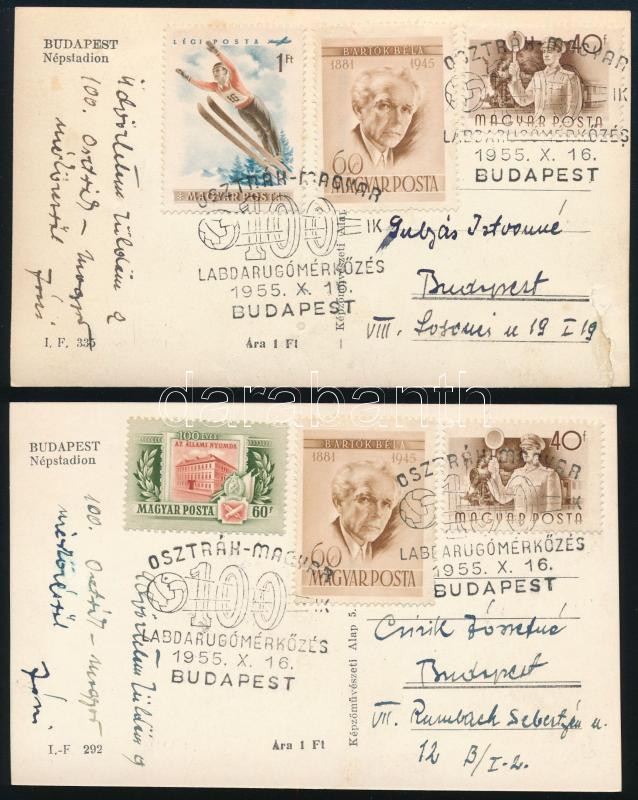 BUDAPEST
Népstadion
LÉGIPOSTA
1Ft
MAGYAR POSTA
BARTÓK BÉLA
1881 1945
60f
MAGYAR POSTA
40f
MAGYAR POSTA
OSZTRÁK-MAGYAR
100 IK
LABDARUGÓMÉRKŐZÉS
1955. X. 16.
BUDAPEST
OSZTRÁK-MAGYAR
IK
LABDARUGÓMÉRKŐZÉS
1955. X. 16.
BUDAPEST
Üdvözletem küldöm a
100. Osztrák – magyar
mérkőzésről
Gulyás Istvánné
Budapest
VIII. Losonci u 19 I 19
Képzőművészeti Alap
I. F. 335
Ára 1 Ft
darabanth
BUDAPEST
Népstadion
100 ÉVES
AZ ÁLLAMI NYOMDA
MAGYAR POSTA 60f
BARTÓK BÉLA
1881 1945
60f
MAGYAR POSTA
40f
MAGYAR POSTA
OSZTRÁK-MAGYAR
100 IK
LABDARUGÓMÉRKŐZÉS
1955. X. 16.
BUDAPEST
OSZTRÁK-MAGYAR
100 IK
LABDARUGÓMÉRKŐZÉS
1955. X. 16.
BUDAPEST
Üdvözletem küldöm a
100. Osztrák – magyar
mérkőzésről
Budapest
VII. Rumbach Sebestyén u.
12 B/I-2.
Képzőművészeti Alap 5.
I.-F 292
Ára 1 Ft